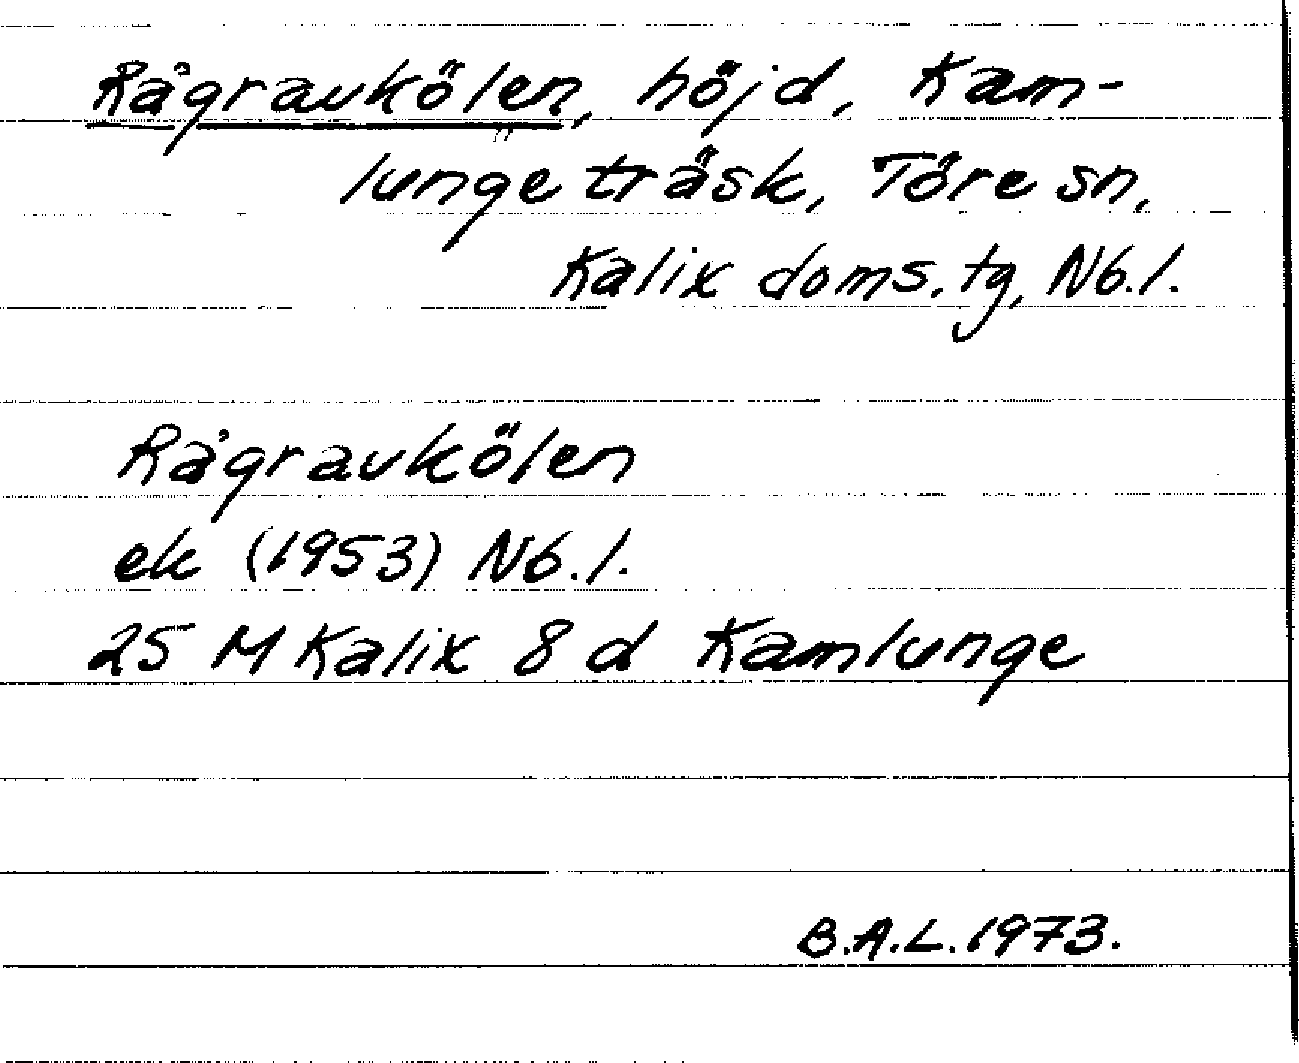 Rågravkölen, höjd, Kam-
lunge träsk, Töre sn,
Kalix doms. tg, Nb. l.
Rågravkölen
ek (1953) Nb. l.
25 M Kalix 8 d Kamlunge
B.A.L. 1973.